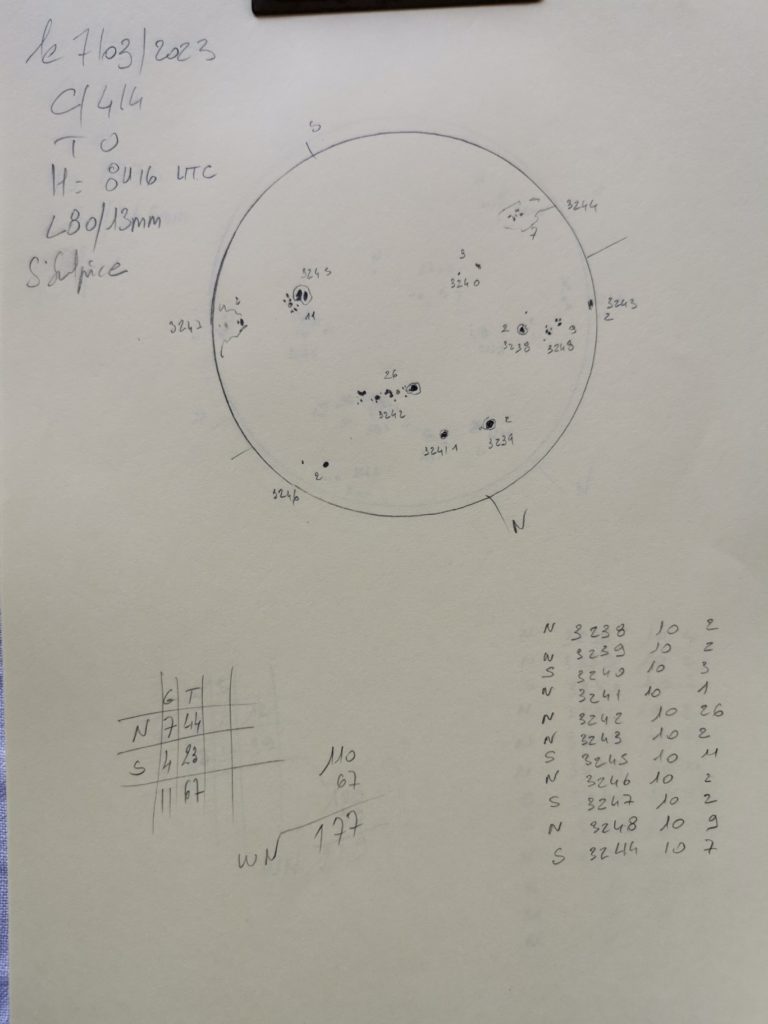 le 7/03/2023
C/4/4
T O
H = 8H16 UTC
L80/13mm
S
3244
7
3
3240
3245
11
3243
2
3247
2
2
3238
9
3248
26
3242
3241 1
2
3239
2
3246
N
N 3238 10 2
N 3239 10 2
S 3240 10 3
N 3241 10 1
N 3242 10 26
N 3243 10 2
S 3245 10 11
N 3246 10 2
S 3247 10 2
N 3248 10 9
S 3244 10 7
G T
N 7 44
S 4 23
11 67
110
67
WN 177